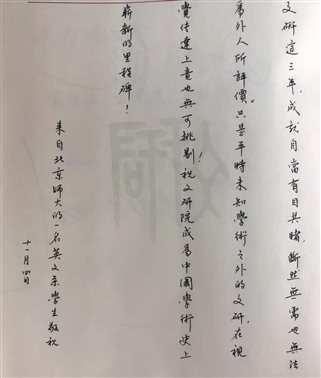 文研這三年，成就自當有目共睹，斷然無需也無法
番外人所評價。只是平時未知學術之外的文研，在視
覺傳達上竟也無可挑剔！祝文研院成為中國學術史上
嶄新的里程碑！
來自北京師大的一名英文系學生敬祝
十一月四日